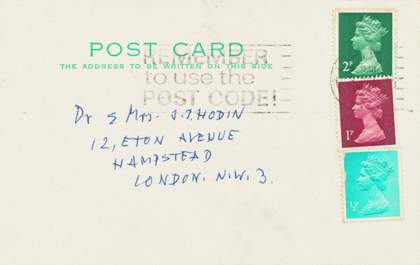 POST CARD
THE ADDRESS TO BE WRITTEN ON THIS SIDE
REMEMBER
to use the
POST CODE!
2P
1P
½P
Dr & Mrs. J.P. HODIN
12, ETON AVENUE
HAMPSTEAD
LONDON. N.W. 3.